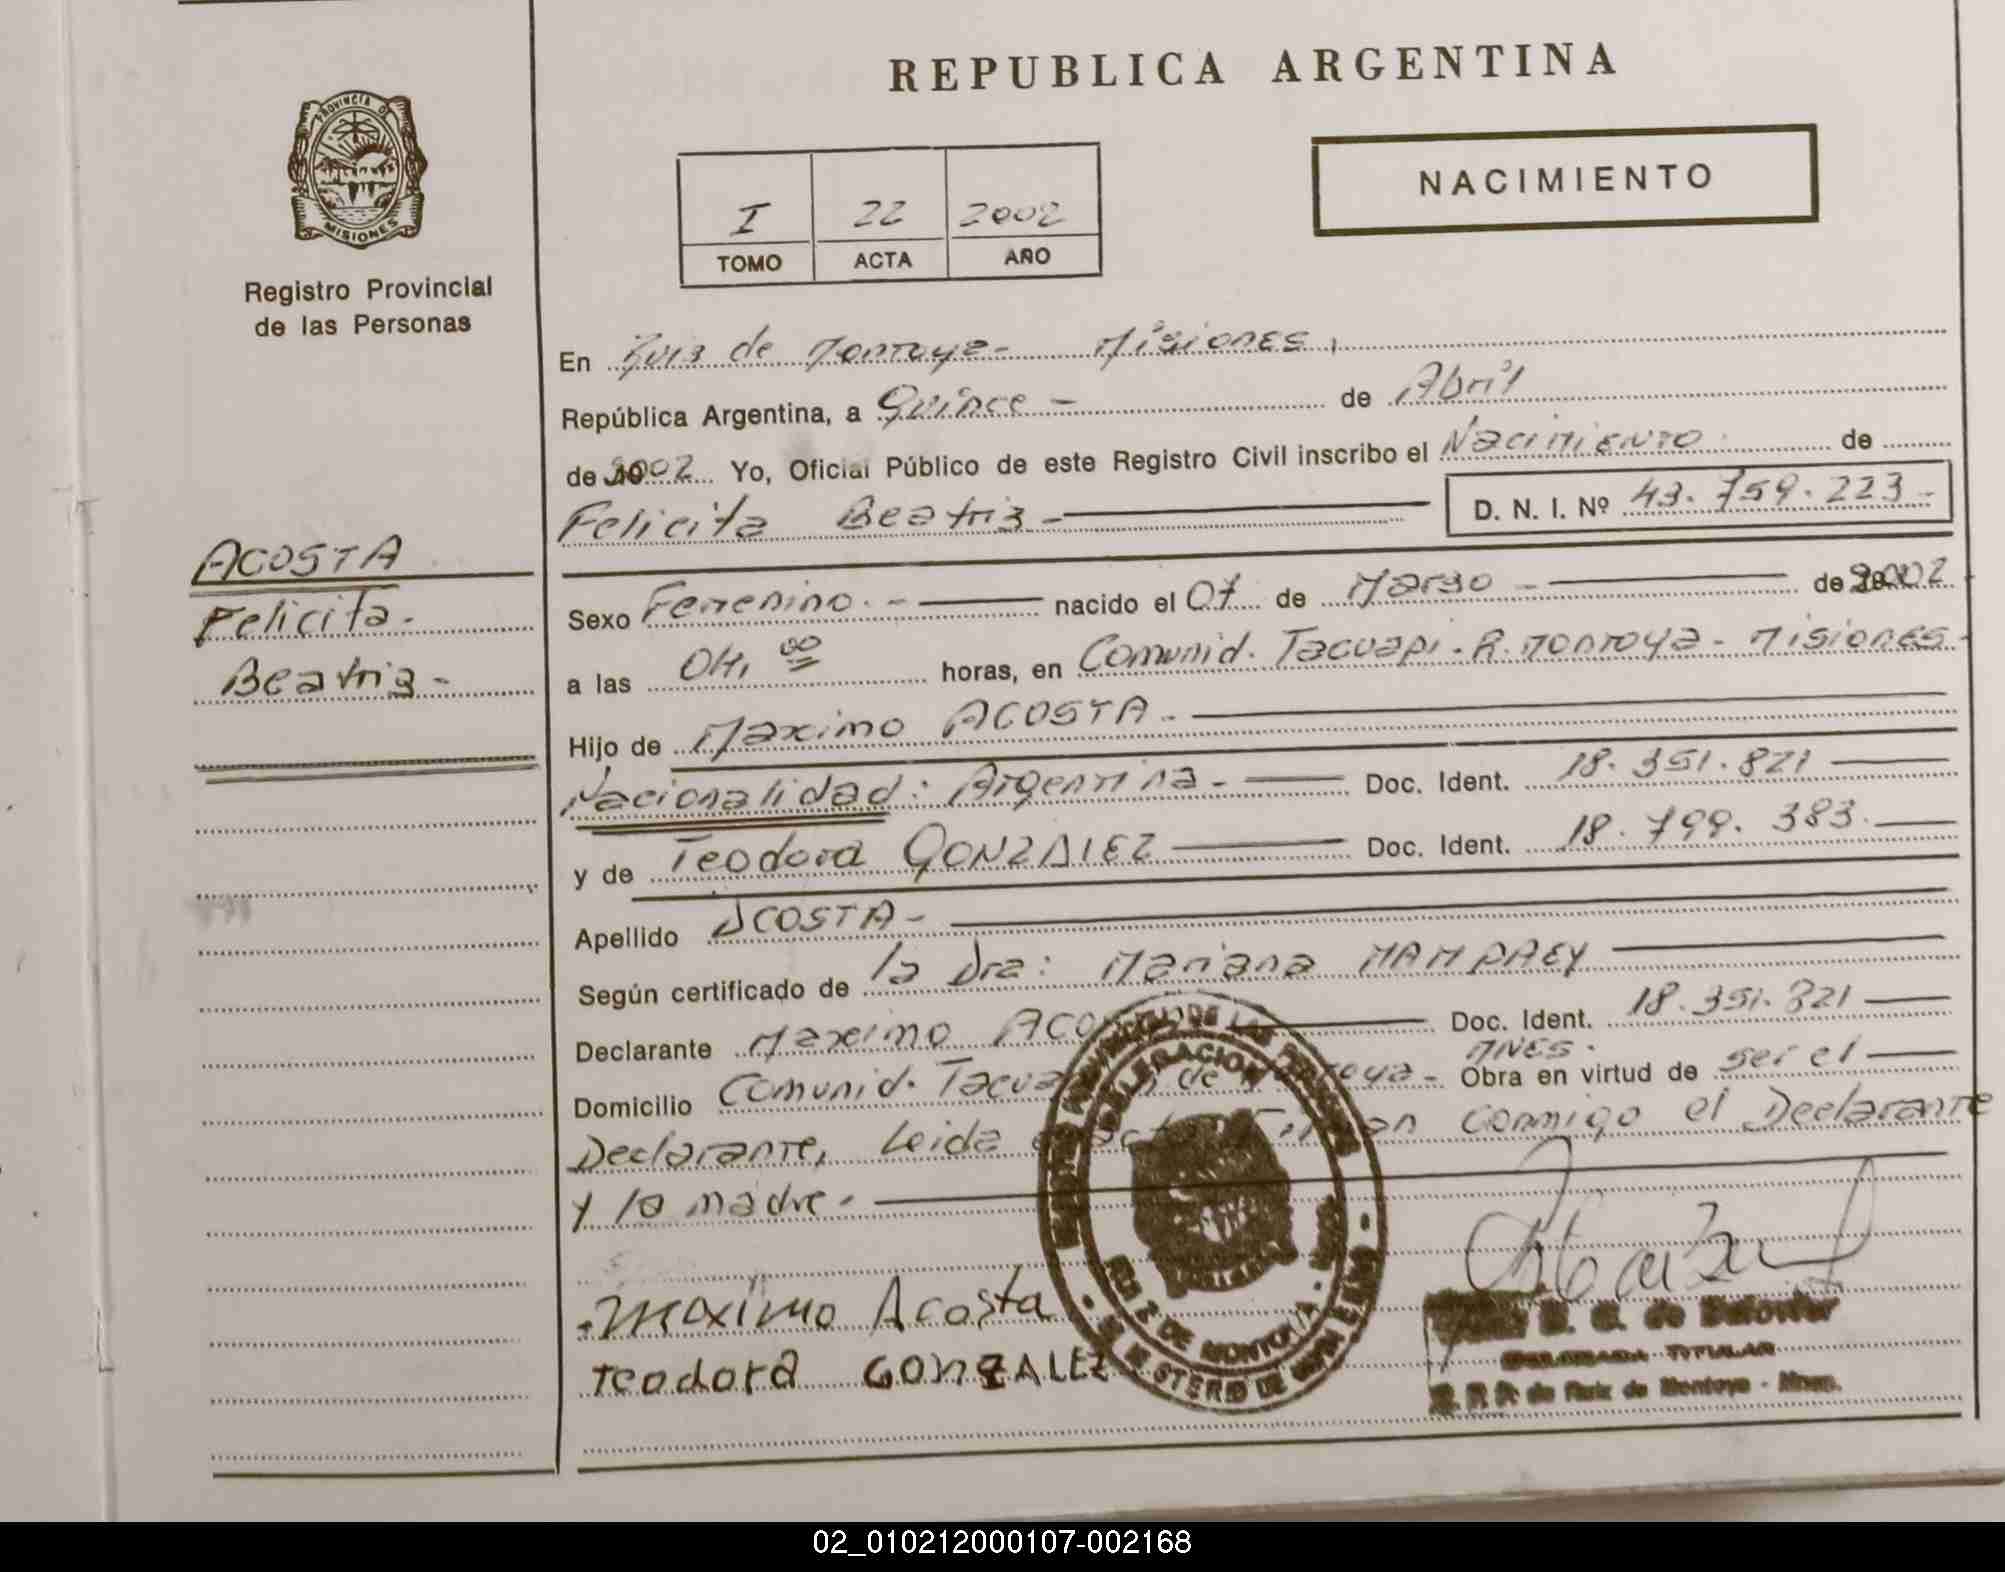 REPUBLICA ARGENTINA
PROVINCIA DE
MISIONES
Registro Provincial
de las Personas
NACIMIENTO
I 22 2002
TOMO ACTA AÑO
En Ruiz de Montoya - Misiones,
República Argentina, a Quince - de Abril
de 2002 Yo, Oficial Público de este Registro Civil inscribo el Nacimiento. de
Felicita Beatriz - D. N. I. Nº 43.759.223 -
ACOSTA
Felicita.
Beatriz -
Sexo Femenino. - nacido el 07 de Marzo - de 2002
a las 04, 00 horas, en Comunid. Tacuapi. R. Montoya - Misiones -
Hijo de Maximo ACOSTA -
Nacionalidad: Argentina - Doc. Ident. 18.351.821
y de Teodora GONZALEZ Doc. Ident. 18.799.383.
Apellido ACOSTA -
Según certificado de la Dra: Mariana
Declarante Maximo Doc. Ident. 18.351.821
Domicilio Comunid. de Montoya - MNES. Obra en virtud de ser el
Declarante, Leida el acta Firman conmigo el Declarante
y la madre.
Maximo Acosta
Teodora GONZALEZ
DELEGACION
RUIZ DE MONTOYA
MINISTERIO DE
DELEGADA TITULAR
R. P. P. de Ruiz de Montoya - Mnes.
02_010212000107-002168